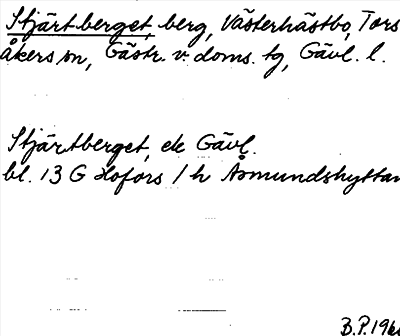 Stjärtberget, berg, Västerhästbo, Tors
åkers sn, Gästr. v. doms. tg, Gävl. l.
Stjärtberget, ek Gävl.
bl. 13 G Hofors / h Åsmundshyttan
B.P. 196